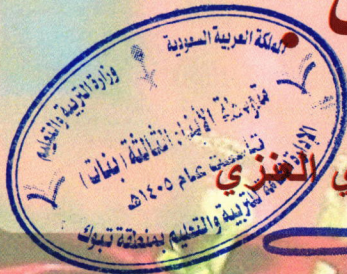 المملكة العربية السعودية
وزارة التربية والتعليم
متوسطة الأبناء الثالثة (بنات)
تأسست عام ١٤٠٥هـ
للتربية والتعليم بمنطقة تبوك
ي العنزي